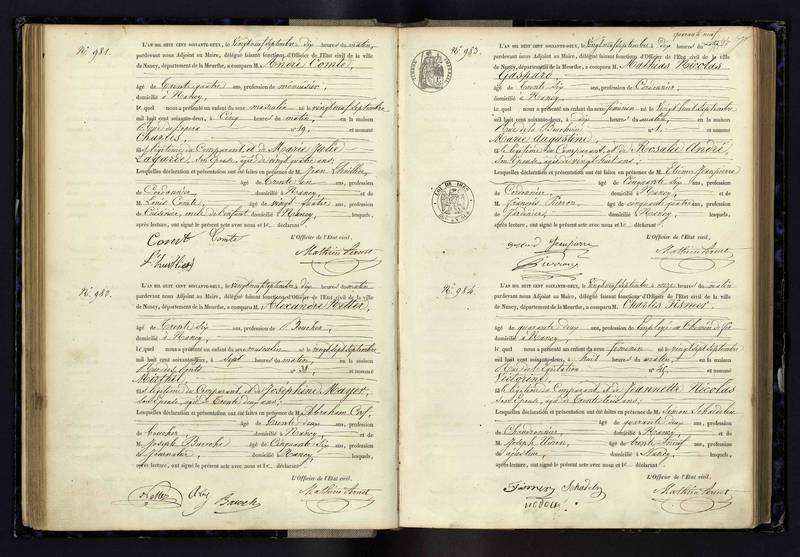 N.º 981.
L'AN MIL HUIT CENT SOIXANTE-DEUX, le Vingt neuf Septembre à dix heures du matin,
pardevant nous Adjoint au Maire, délégué faisant fonctions d'Officier de l'Etat civil de la ville
de Nancy, département de la Meurthe, a comparu M. André Comte,
âgé de Trente quatre ans, profession de menuisier,
domicilié à Nancy,
le quel nous a présenté un enfant du sexe masculin né le vingt neuf Septembre
mil huit cent soixante-deux, à Cinq heures du matin, en la maison
N.º 19, et nommé
Charles,
fils légitime du Comparant et de Marie Julie
Lagarde, son épouse, âgée de vingt quatre ans;
Lesquelles déclaration et présentation ont été faites en présence de M. Jean Thuillier,
âgé de Trente un ans, profession
de Cordonnier, domicilié à Nancy, et de
M. Louis Comte, âgé de vingt quatre ans, profession
de Cuisinier, oncle de l'enfant domicilié à Nancy, lesquels,
après lecture, ont signé le présent acte avec nous et le déclarant.
L'Officier de l'Etat civil,
Comte Comte
Thuillier
N.º 982.
L'AN MIL HUIT CENT SOIXANTE-DEUX, le vingt neuf Septembre à dix heures du matin,
pardevant nous Adjoint au Maire, délégué faisant fonctions d'Officier de l'Etat civil de la ville
de Nancy, département de la Meurthe, a comparu M. Alexandre Hetter,
âgé de Trente Six ans, profession de Boucher,
domicilié à Nancy,
le quel nous a présenté un enfant du sexe masculin né le vingt sept Septembre
mil huit cent soixante-deux, à Sept heures du matin, en la maison
N.º 38, et nommé
fils légitime du Comparant, et de Joséphine Mayer,
son épouse, âgée de Trente deux ans;
Lesquelles déclaration et présentation ont été faites en présence de M. Abraham Cerf,
âgé de Trente deux ans, profession
de boucher, domicilié à Nancy, et de
M. Joseph Baroche âgé de Cinquante Six ans, profession
de Journalier, domicilié à Nancy, lesquels,
après lecture, ont signé le présent acte avec nous et le déclarant
L'Officier de l'Etat civil,
N.º 983.
quarante neuf
L'AN MIL HUIT CENT SOIXANTE-DEUX, le vingt neuf Septembre à dix heures du matin,
pardevant nous Adjoint au Maire, délégué faisant fonctions d'Officier de l'Etat civil de la ville
de Nancy, département de la Meurthe, a comparu M. Mathias Nicolas
Gaspard,
âgé de Trente Six ans, profession de Cordonnier,
domicilié à Nancy,
le quel nous a présenté un enfant du sexe féminin né le Vingt huit Septembre
mil huit cent soixante-deux, à dix heures du matin, en la maison
Rue de la Boucherie N.º 1, et nommé
Marie Augustine,
fille légitime du Comparant, et de Rosalie André
son épouse, âgée de vingt huit ans;
Lesquelles déclaration et présentation ont été faites en présence de M. Etienne Jeanpierre
âgé de Cinquante Six ans, profession
de Cordonnier, domicilié à Nancy, et de
M. François Pierron, âgé de cinquante quatre ans, profession
de Jardinier, domicilié à Nancy, lesquels,
après lecture, ont signé le présent acte avec nous et le déclarant.
L'Officier de l'Etat civil,
Jeanpierre
Pierron
N.º 984.
L'AN MIL HUIT CENT SOIXANTE-DEUX, le Vingt neuf Septembre à onze heures du matin
pardevant nous Adjoint au Maire, délégué faisant fonctions d'Officier de l'Etat civil de la ville
de Nancy, département de la Meurthe, a comparu M. Charles Fismer,
âgé de quarante deux ans, profession de Employé au Chemin de fer
domicilié à Nancy,
le quel nous a présenté un enfant du sexe féminin né le vingt sept Septembre
mil huit cent soixante-deux, à huit heures du matin, en la maison
Rue de l'Equitation N.º 45, et nommé
Victorine
fille légitime du Comparant, et de Jeannette Nicolas
son épouse, âgée de Trente huit ans;
Lesquelles déclaration et présentation ont été faites en présence de M. Simon Schadelin
âgé de quarante deux ans, profession
de Chaudronnier, domicilié à Nancy, et de
M. Joseph âgé de Trente neuf ans, profession
de ajusteur, domicilié à Nancy, lesquels,
après lecture, ont signé le présent acte avec nous et le déclarant.
L'Officier de l'Etat civil,
Fismer Schadelin